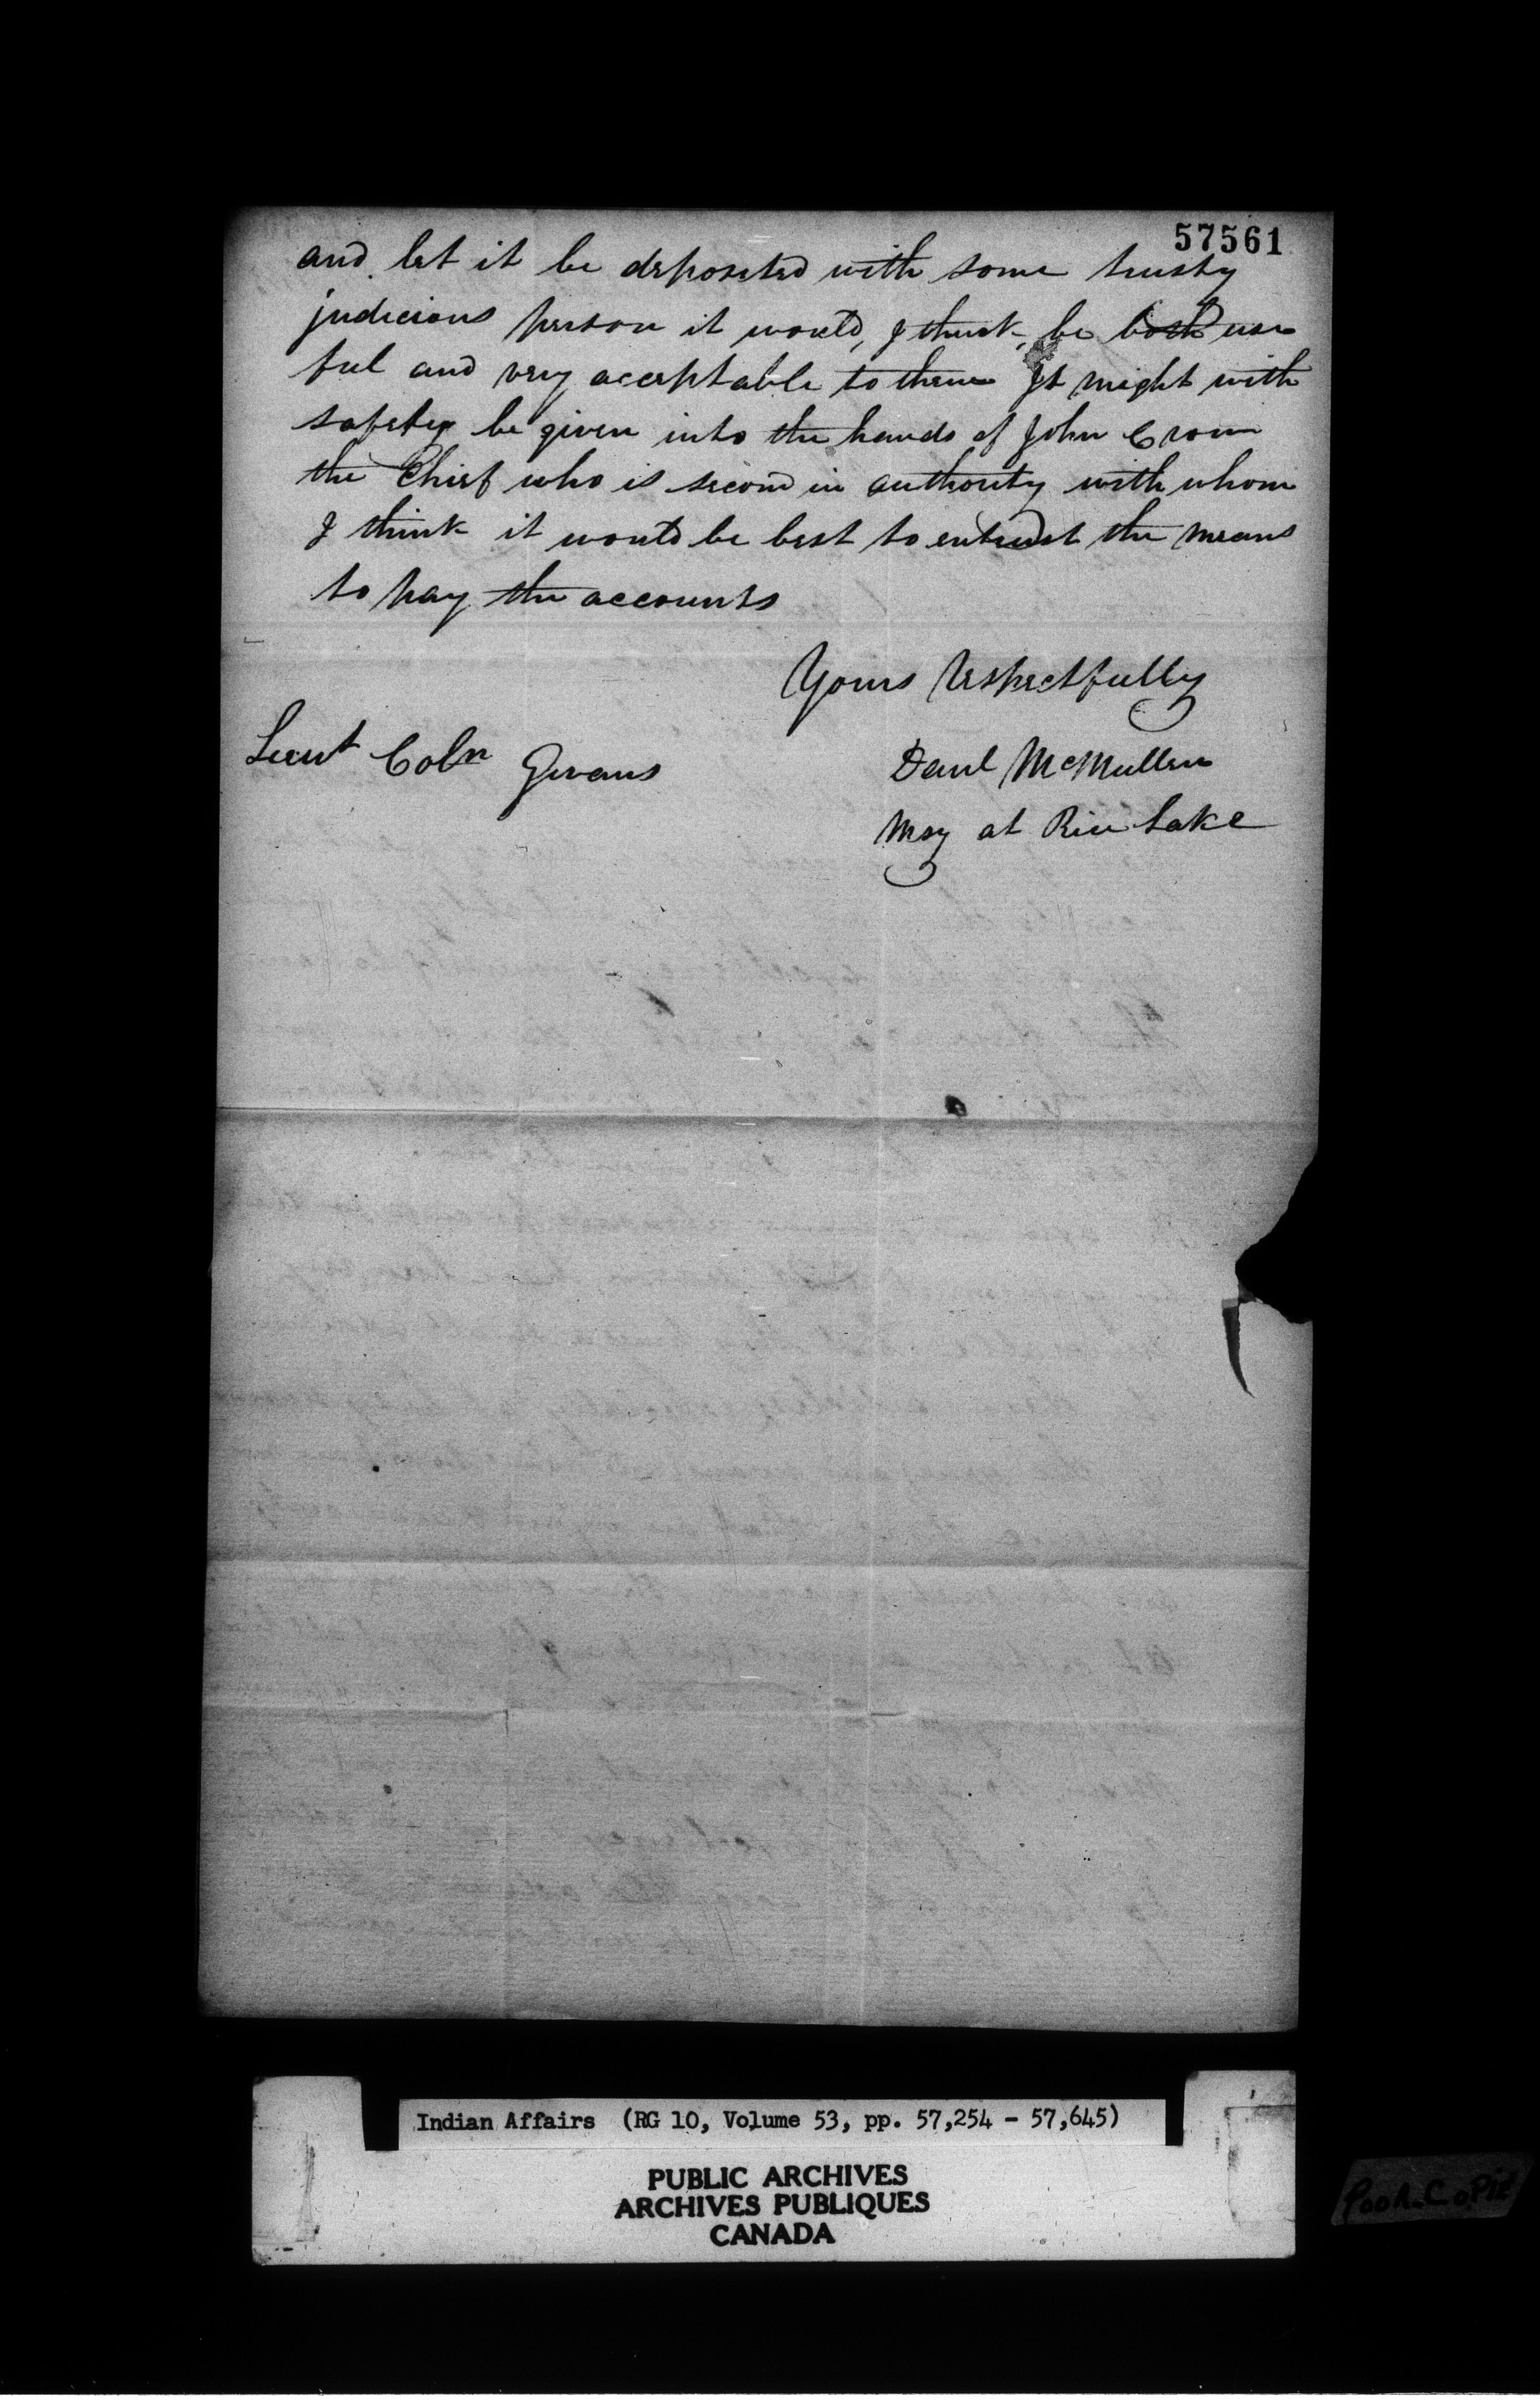 57561
and let it be deposited with some trusty
judicious person it would, I think, be both use
ful and very acceptable to them It might with
safety be given into the hands of John Crow
the Chief who is second in authority with whom
I think it would be best to entrust the means
to pay the accounts
Yours respectfully
Lieut Coln Givans
Danl McMullen
Msy at Rice Lake
Indian Affairs (RG 10, Volume 53, pp. 57,254 - 57,645)
PUBLIC ARCHIVES
ARCHIVES PUBLIQUES
CANADA
POOR COPIE